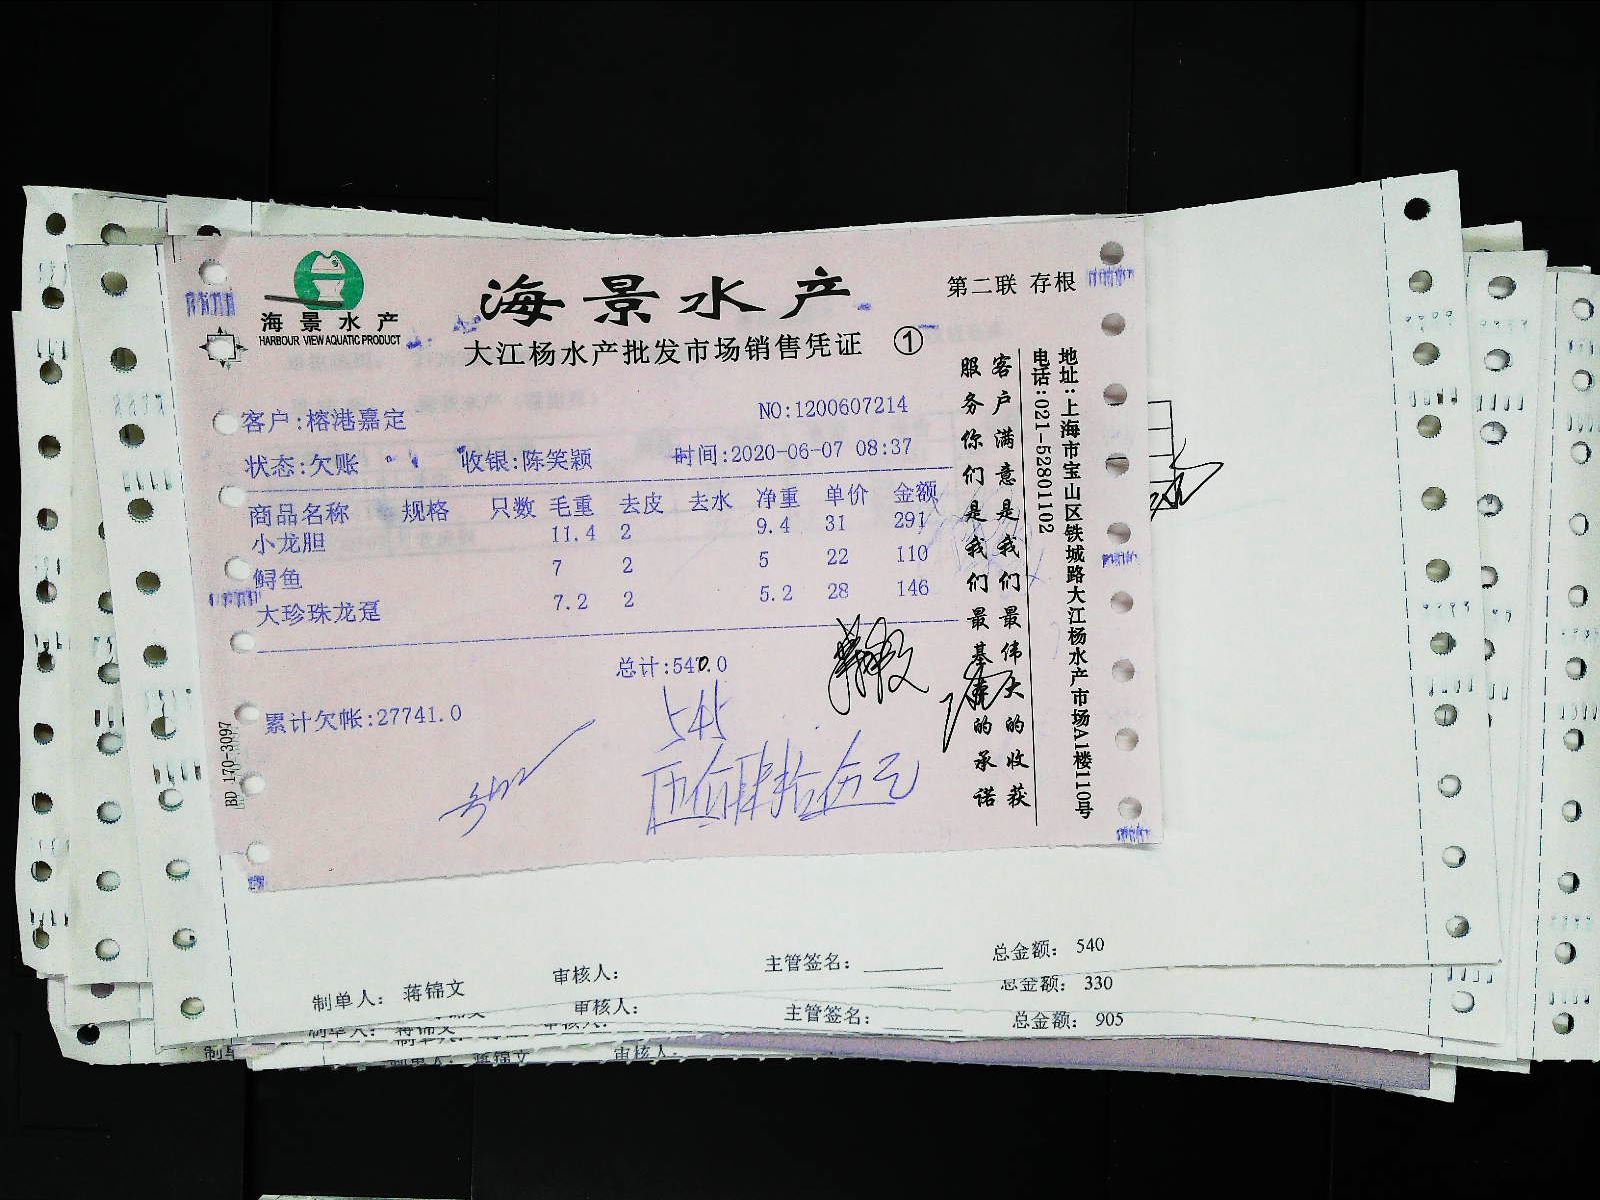 海景水产
HARBOUR VIEW AQUATIC PRODUCT
海景水产
第二联 存根
大江杨水产批发市场销售凭证 ①
客户:榕港嘉定 NO:1200607214
状态:欠账 收银:陈笑颖 时间:2020-06-07 08:37
商品名称 规格 只数 毛重 去皮 去水 净重 单价 金额
小龙胆 11.4 2 9.4 31 291
鲟鱼 7 2 5 22 110
大珍珠龙趸 7.2 2 5.2 28 146
总计:547.0
累计欠帐:27741.0
545
伍佰肆拾伍元
BD 170-3097
客户满意是我们最伟大的收获
服务你们是我们最基本的承诺
地址:上海市宝山区铁城路大江杨水产市场A1楼110号
电话:021-52801102
制单人: 蒋锦文 审核人: 主管签名: 总金额: 540
审核人: 总金额: 330
制单人: 蒋锦文 审核人: 主管签名: 总金额: 905
制单人: 蒋锦文 审核人: